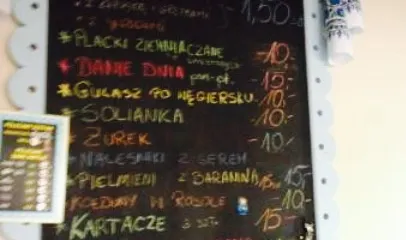 1,50
* PLACKI ZIEMNIACZANE -10-
* DANIE DNIA pon-pt. -15-
* GULASZ PO WĘGIERSKU -10-
* SOLIANKA -10-
* ŻUREK -10-
* NALEŚNIKI Z SEREM -10-
* PIELMIENI Z BARANINĄ 15,-
* KOŁDUNY W ROSOLE -10-
* KARTACZE 15-